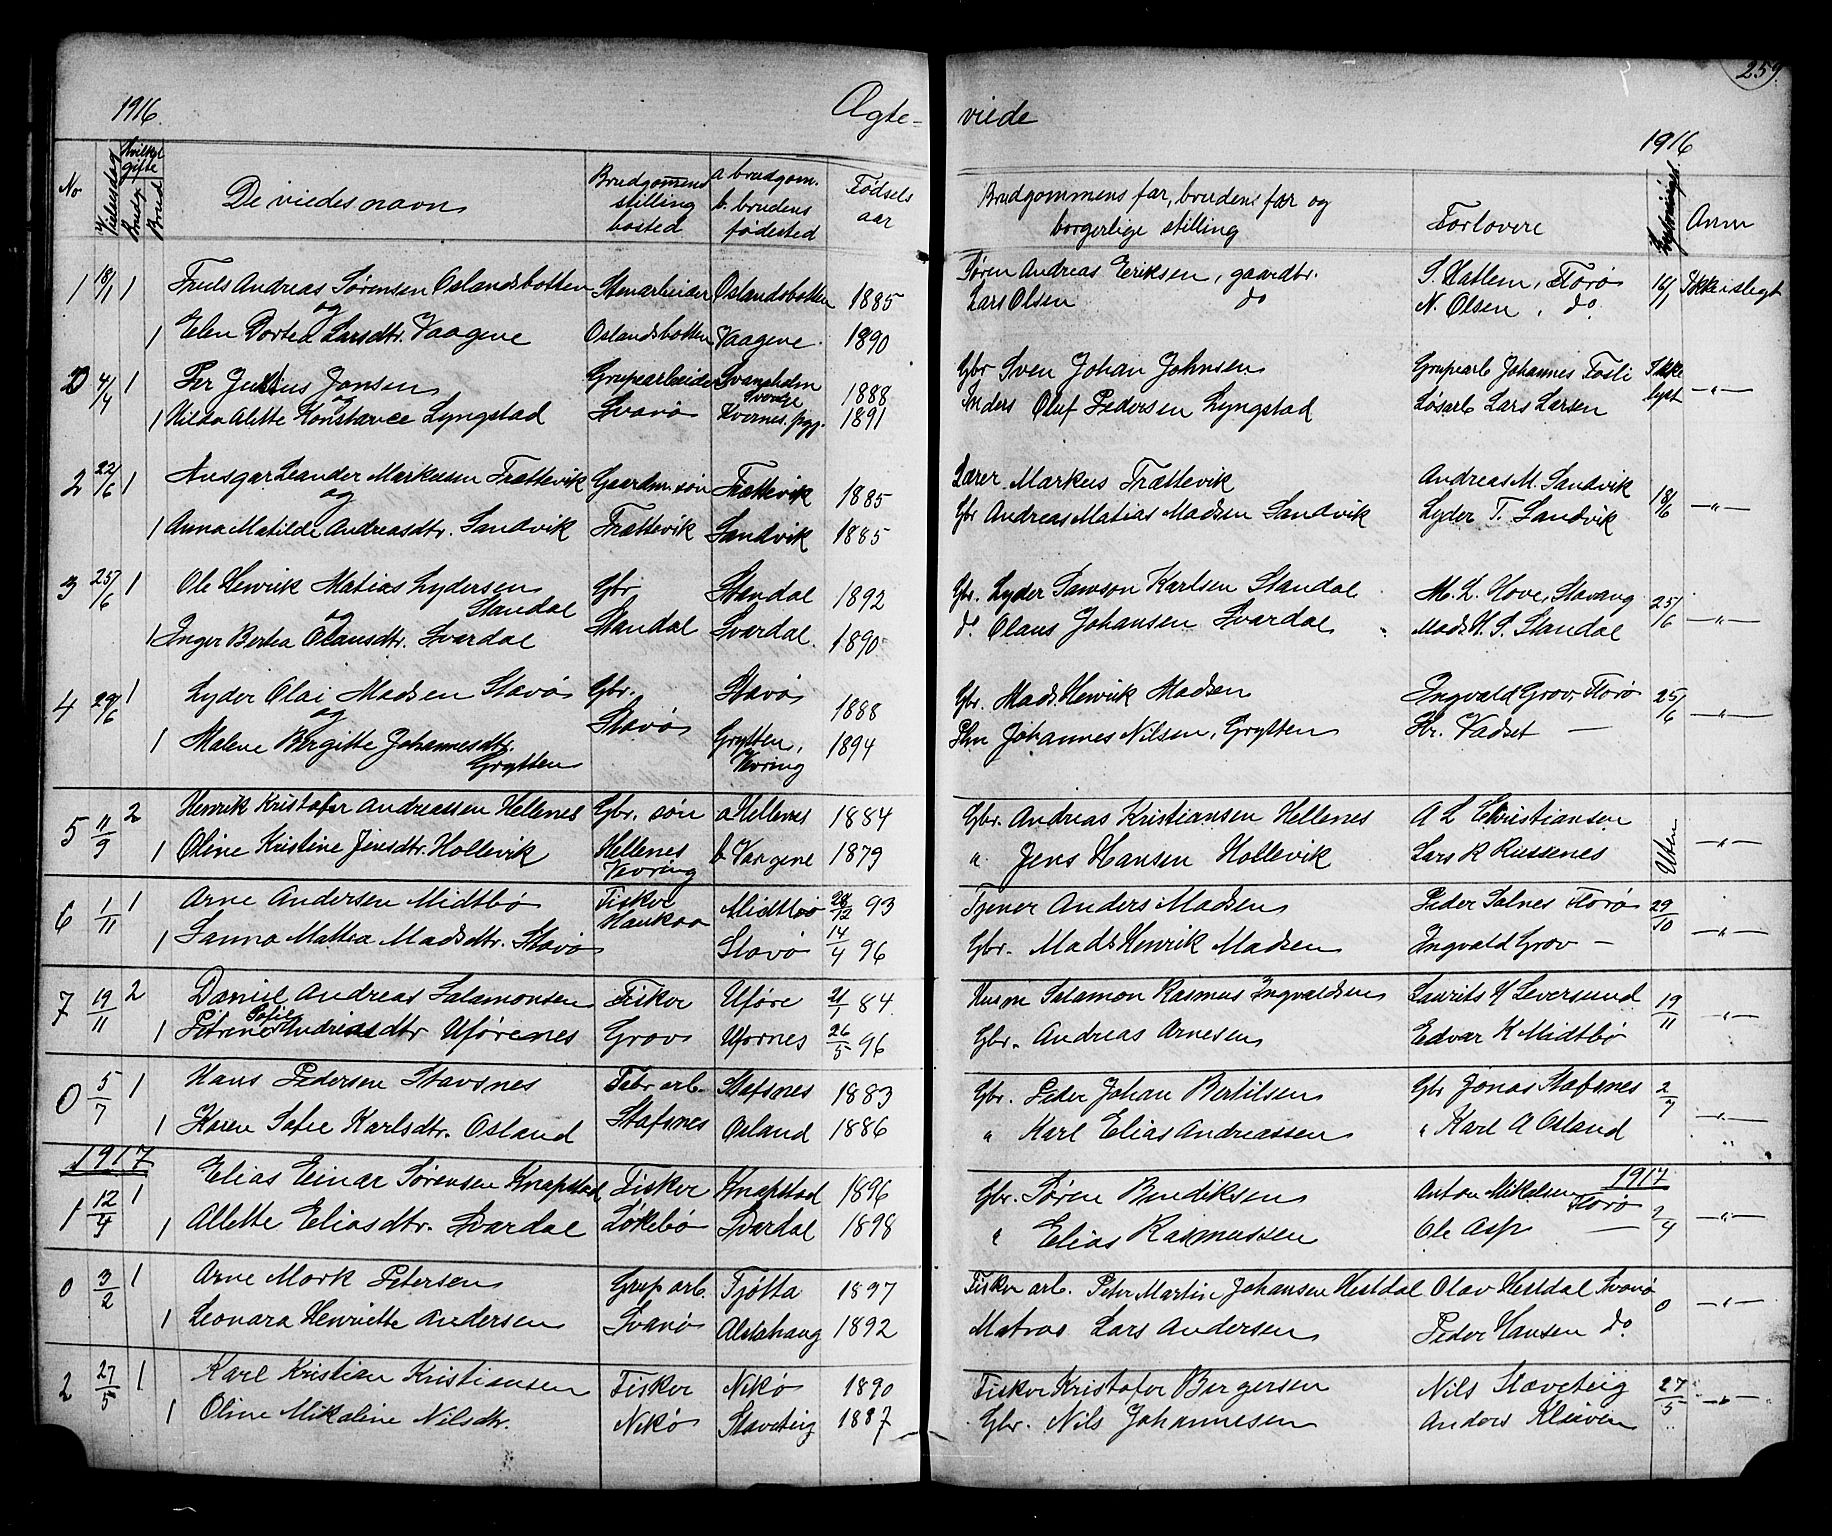 259.
1916. Ægte- viede 1916
No Vielsesdag Hvilket gifte Brudg. Brud De viedes navn Brudgommens stilling bosted a. brudgom. b. brudens fødested Fødsels aar Brudgommens far, brudens far og borgerlige stilling Forlovere Anm
1 18/1 1 Andreas Sørensen Oslandsbotten Stenarbeider Oslandsbotten 1885 Søren Andreas Eriksen, gaardbr. S. Hatlem, Florø 16/1 Ikke i slegt
og
1 Elen Dortea Larsdtr. Vaagene Oslandsbotten Vaagene 1890 Lars Olsen do N. Olsen, do.
4/4 1 Per Julius Jonsen Grupearbeider Svansholm Sverige 1888 Gbr Sven Johan Johnsen Gruparb Johannes Fosli Ikke lyst —"—
og
1 Hilda Alette Konstance Lyngstad Svanø Kvernes. pgj. 1891 Anders Oluf Pedersen Lyngstad Løsarb Lars Larsen
2 22/6 1 Ansgar Leander Markussen Trættevik Gaardm. søn Trættevik 1885 Lærer Markus Trættevik Andreas M. Sandvik 18/6 —"—
og
1 Anna Matilde Andreasdtr. Sandvik Trættevik Sandvik 1885 Gbr Andreas Matias Madsen Sandvik Lyder T. Sandvik
3 25/6 1 Ole Henrik Matias Lydersen Standal Gbr Standal 1892 Gbr. Lyder Samson Karlsen Standal M. L. Hove, Stavang 25/6 —"—
og
1 Inger Bertea Olausdtr. Svardal Standal Svardal. 1890 do Olaus Johansen Svardal Mads H. S. Standal
4 29/6 1 Lyder Olai Madsen Stavø Gbr. Stavø 1888 Gbr. Mads Henrik Madsen Ingvald Grov, Florø 25/6 —"—
og
1 Malene Bergitte Johannesdtr. Grytten Stavø Grytten, Vevring 1894 Johannes Nilsen, Grytten Kr. Vadset —
5 11/9 2 Henrik Kristofer Andreassen Hellenes Gbr. søn a Hellenes 1884 Gbr. Andreas Kristiansen Hellenes A L Christiansen Uten —"—
1 Oline Kristine Jensdtr. Hollevik Hellenes Vevring b Vaagene 1879 " Jens Hansen Hollevik Lars R Russenes
6 1/11 1 Arne Andersen Midtbø Fisker Midtbø 28/12 93 Tjener Anders Madsen Peder Solnes Florø 29/10 —"—
1 Sanna Mattea Madsdtr. Stavø Haukaa Stavø 14/4 96 Gbr. Mads Henrik Madsen Ingvald Grov —
7 19/11 2 Daniel Andreas Salamonsen Fisker Uføre 21/1 84. Husm Salamon Rasmus Ingvaldsen Laurits Y Seversund 19/11 —"—
1 Petrine Sofie Andreasdtr Uførenes Grov Ufornes 26/5 96 Gbr. Andreas Arnesen Edvar K Midtbø
0 5/7 1 Hans Pedersen Stavsnes Fabr arb. Stafsnes 1883 Gbr. Peder Johan Bertilsen Gbr Jonas Stafsnes 2/7 —"—
1 Karen Sofie Karlsdtr. Osland Stafsnes Osland 1886 " Karl Elias Andreassen " Karl A Osland
1917 1917
1 12/4 1 Elias Einar Sørensen Knapstad Fisker Knapstad 1896 Gbr. Søren Bendiksen Anton Mikalsen Florø 2/4 —"—
1 Allette Eliasdtr. Svardal Løkebø Svardal 1898 " Elias Rasmussen Ole Asp —
0 3/2 1 Arne Mork Petersen Grup arb. Tjøtta 1897 Fisker arb. Peter Martin Johansen Hestdal Olav Hestdal Svanø 0 —"—
1 Leonara Henriette Andersen Svanø Alstahaug 1892 Matros Lars Andersen Peder Hansen do.
2 27/5 1 Karl Kristian Kristiansen Fisker Nikø 1890 Fisker Kristofer Bergersen Nils Staveteig 27/5 —"—
1 Oline Mikaline Nilsdtr. Nikø Staveteig 1887 Gbr. Nils Johannesen Anders Kleiven